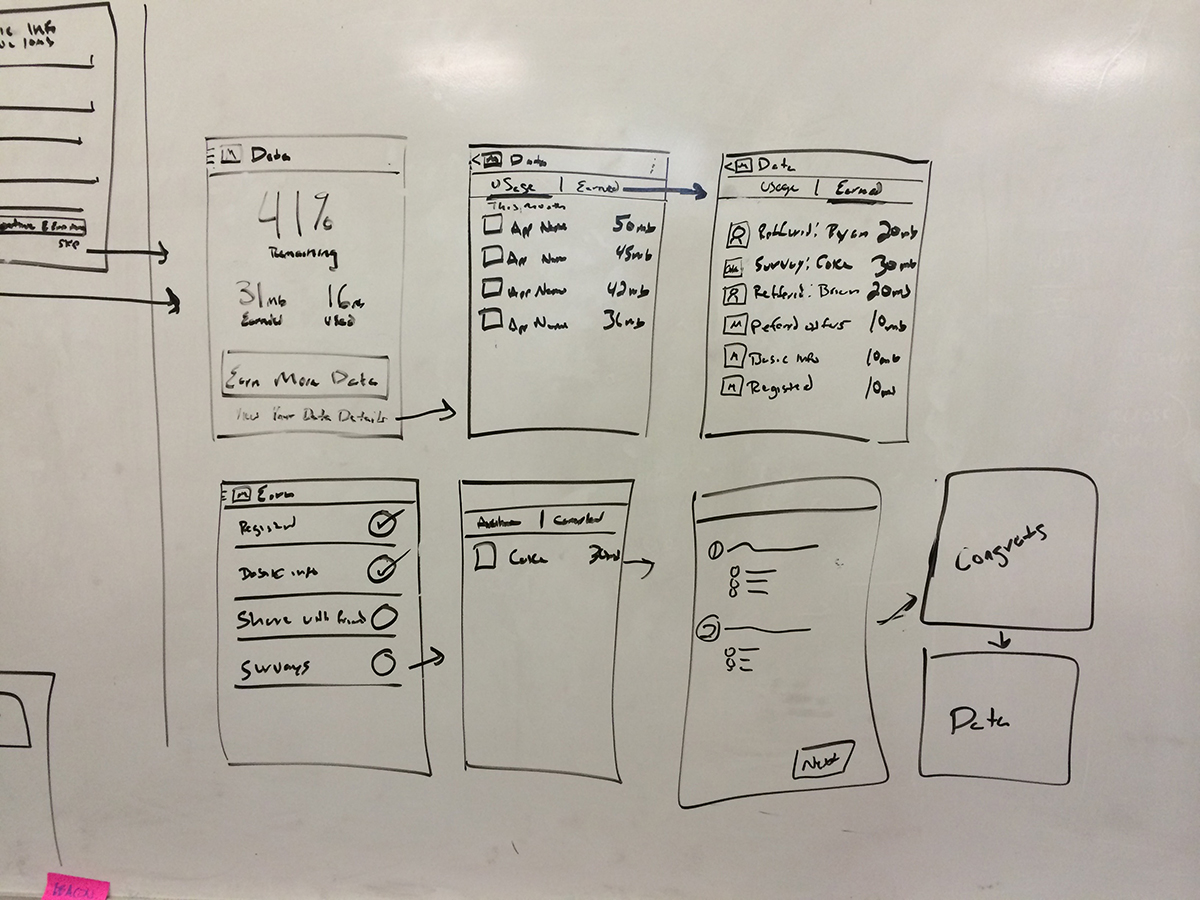 Info
10mb
Skip
M Data
41%
Remaining
31mb 16mb
Earned Used
Earn More Data
View Your Data Details
< M Data
Usage | Earned
This month
App Name 50mb
App Name 45mb
App Name 42mb
App Name 36mb
< M Data
Usage | Earned
Bryan 20mb
Survay: Coke 30mb
Brian 20mb
M 10mb
Basic Info 10mb
M Registered 10mb
M Earn
Registerd
Basic info
Share with friend
Survays
Available | Completed
Coke 30mb
1
2
Next
Congrats
Data